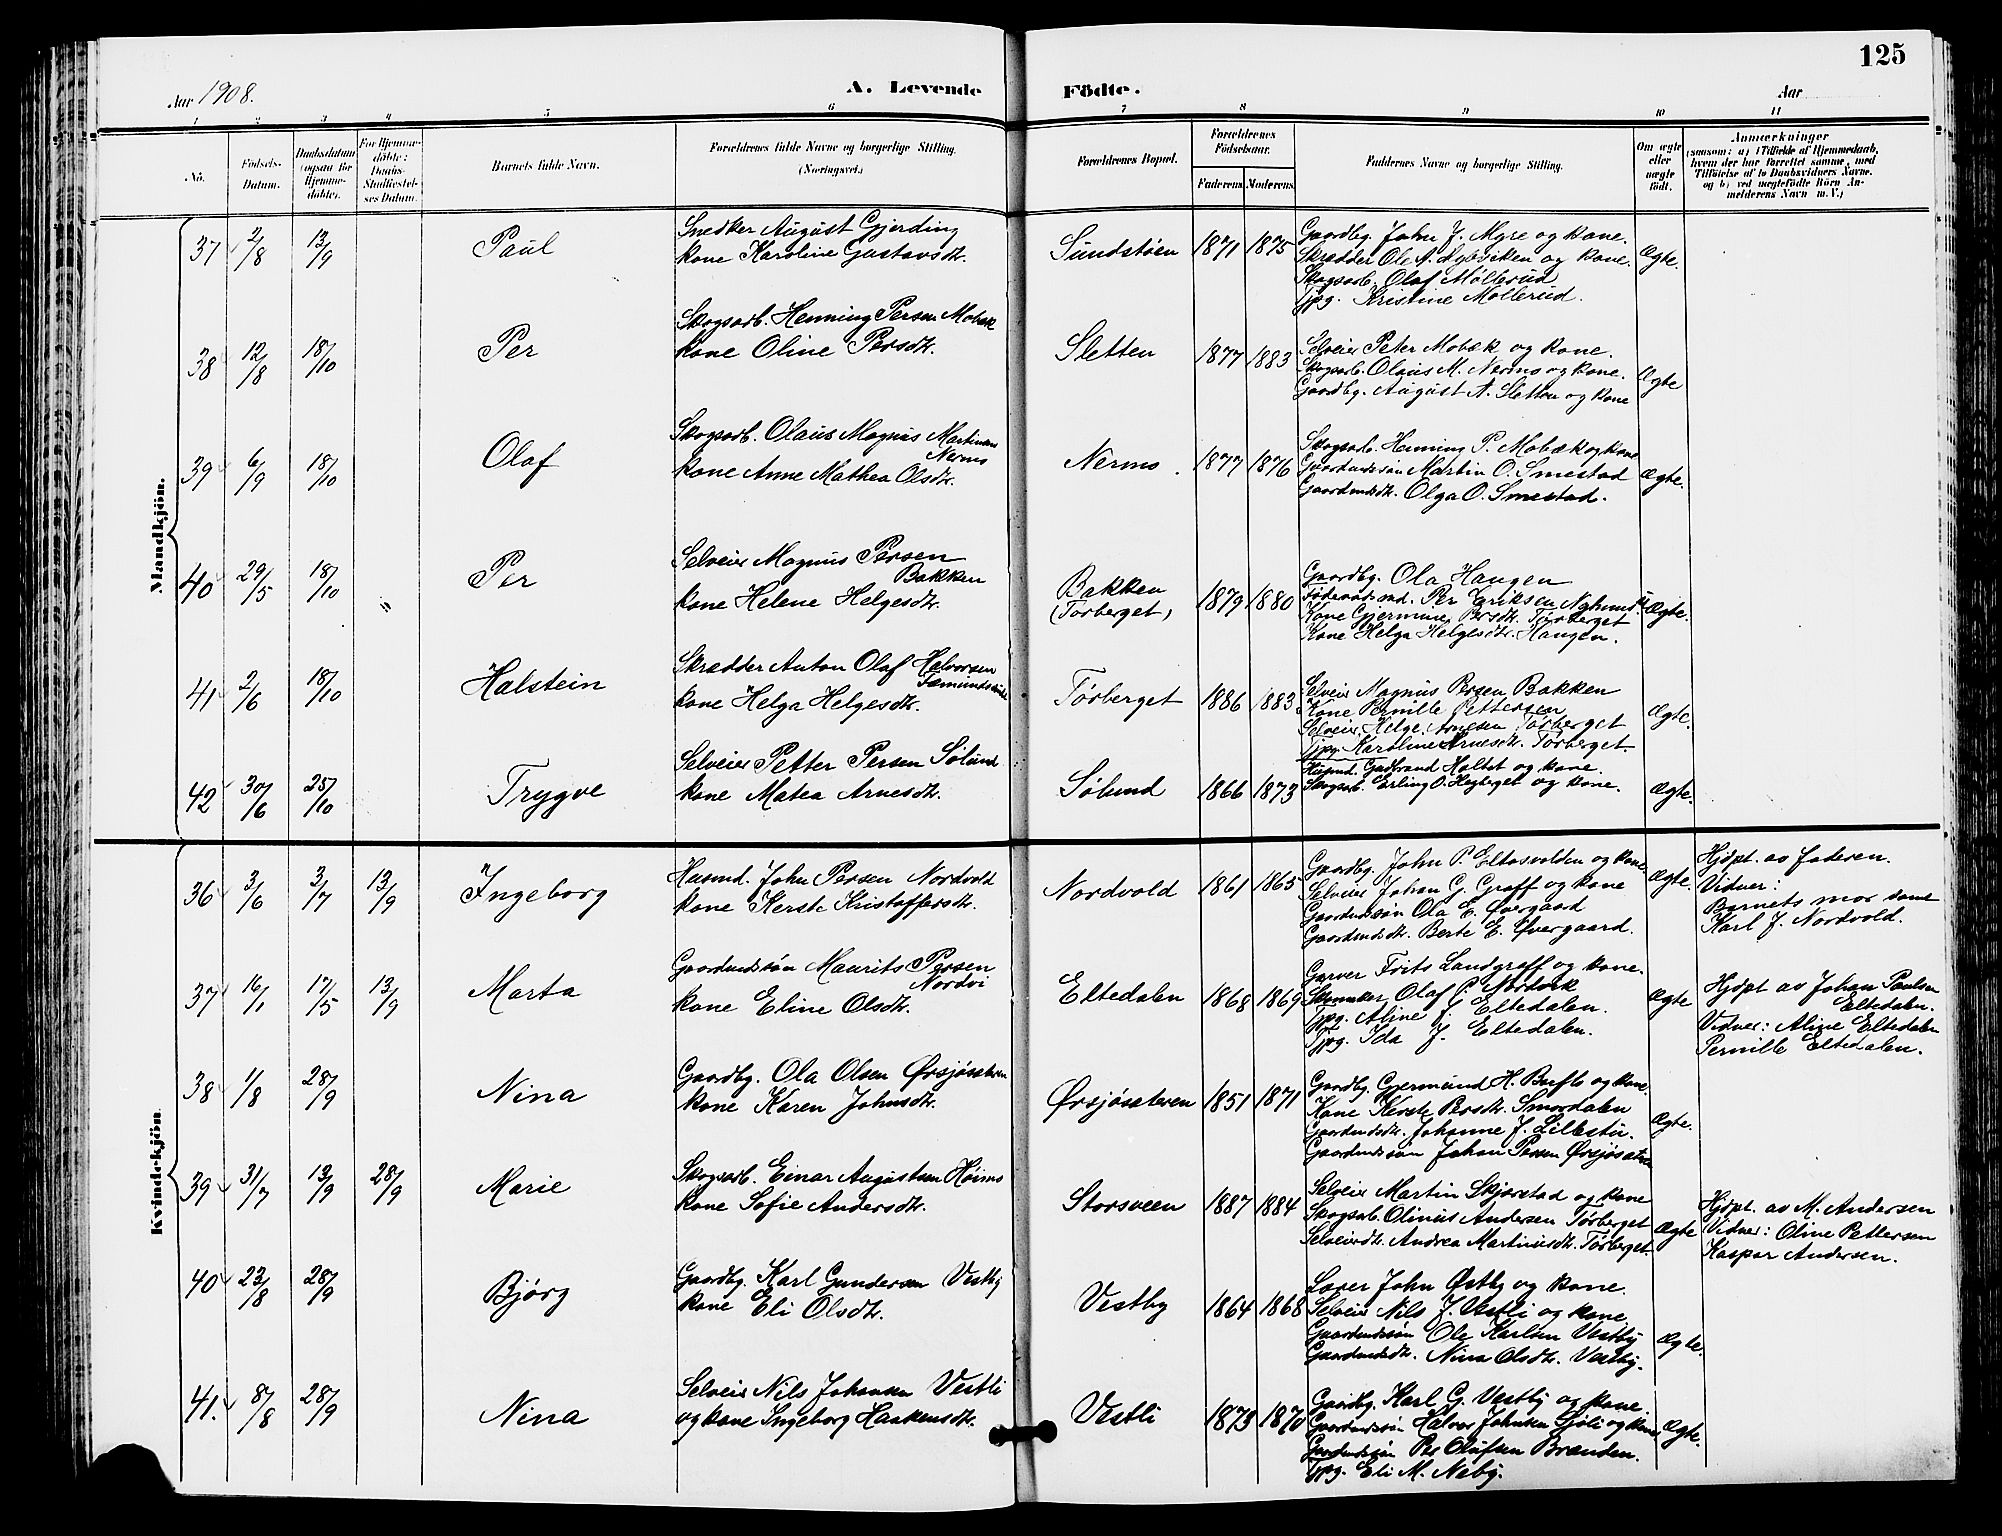 125
Aar 1908. A. Levende Födte. Aar
1 2 3 4 5 6 7 8 9 10 11
No. Födsels-Datum. Daabsdatum (ogsaa for Hjemmedöbte). For Hjemmedöbte: Daabs-Stadfæstelses Datum. Barnets fulde Navn. Forældrenes fulde Navne og borgerlige Stilling. (Næringsvei.) Forældrenes Bopæl. Forældrenes Födselsaar. Faderens. Moderens. Faddernes Navne og borgerlige Stilling. Om ægte eller uægte födt. Anmærkninger (saasom: a) i Tilfælde af Hjemmedaab, hvem der har forrettet samme, med Tilföielse af to Daabsvidners Navne, og b) ved uægtefödte Börn Anmelderens Navn m. V.)
Mandkjön.
37 2/8 13/9 Paul Snedker August Gjerding
kone Karoline Gustavsdtr. Sundstøen 1871 1875 Gaardbg. John J. Myre og kone.
Skrædder Ole A. og kone.
Skogsarb. Olaf Møllerud
Tjpg. Kristine Møllerud. Ægte.
38 12/8 18/10 Per Skogsarb. Henning Persen Mobæk
kone Oline Persdtr. Sletten 1877 1883 Selveier Peter Mobæk og kone.
Skogsarb. Olaus M. Nermo og kone.
Gaardbg. August A. Sletten og kone Ægte
39 6/9 18/10 Olaf Skogsarb. Olaus Magnus Martinsen
Nermo
kone Anne Mathea Olsdtr. Nermo. 1877 1876 Skogsarb. Henning P. Mobæk og kone
Gaardmdssøn Martin O. Smestad
Gaardmdsdtr. Olga O. Smestad. Ægte.
40 29/5 18/10 " Per Selveier Magnus Persen
Bakken
kone Helene Helgesdtr. Bakken
(Tørberget) 1879 1880 Gaardbg. Ola Haugen
Føderaadsmd. Per Eriksen
Kone Persdtr. Tørberget
Kone Helga Helgesdtr. Haugen. Ægte.
41 2/6 18/10 Halstein Skrædder Anton Olaf Halvorsen
Fæmunds
kone Helga Helgesdtr. Tørberget 1886 1883 Selveier Magnus Persen Bakken
Kone Pernille Pettersen
Selveier Helge Arnesen Tørberget
Tjpg. Karoline Arnesdtr. Tørberget. Ægte.
42 30/6 25/10 Trygve Selveier Petter Persen Sølund
kone Matea Arnesdtr. Sølund 1866 1873 Husmd. Gudbrand Holtet og kone.
Skogsarb. Erling O. Hegberget og kone. Ægte.
Kvindekjön.
36 3/6 3/7 13/9 Ingeborg Husmd. John Persen Nordvold
kone Kerste Kristoffersdtr. Nordvold 1861 1865 Gaardbg. John P. Eltasvolden og kone
Selveier Johan G. Graff og kone
Gaardmdssøn Ola E. Øvergaard
Gaardmdsdtr. Berte E. Øvergaard. Ægte. Hjdpt. av faderen.
Vidner:
Barnets mor samt
Karl J. Nordvold.
37 16/1 17/5 13/9 Marta Gaardmdssøn Maurits Persen
Nordvi
kone Eline Olsdtr. Eltedalen 1868 1869 Garver Frits Landgraff og kone.
Olaf P. Nordvik
Tjpg. Aline J. Eltedalen.
Tjpg. Ida J. Eltedalen. Ægte Hjdpt av Johan Paulsen
Eltedalen.
Vidner: Aline Eltedalen
Pernille Eltedalen.
38 1/8 28/9 Nina Gaardbg. Ola Olsen Ørsjøsæteren
kone Karen Johnsdtr. Ørsjøsæteren 1851 1871 Gaardbg. Gjermund H. og kone.
Kone Kerste Persdtr. Smordalen
Gaardmdsdtr. Johanne J. Lillestu.
Gaardmdssøn Johan Persen Ørsjøsætren Ægte.
39 31/7 13/9 28/9 Marie Skogsarb. Einar Augustsen Høimo
kone Sofie Andersdtr. Storsveen 1887 1884 Selveier Martin Skjærstad og kone
Skogsarb. Olinus Andersen Tørberget
Selveierdtr. Andrea Martinusdtr. Tørberget. Ægte Hjdpt. av M. Andersen
Vidner: Oline Pettersen
Kaspar Andersen.
40 23/8 28/9 Bjørg Gaardbg. Karl Gundersen Vestby
kone Eli Olsdtr. Vestby 1864 1868 John Østby og kone.
Selveier Nils J. Vestli og kone.
Gaardmdssøn Ole Karlsen Vestby
Gaardmdsdtr. Nina Olsdtr. Vestby. Ægte.
41. 8/8 28/9 Nina Selveier Nils Johansen Vestli
og kone Ingeborg Haakensdtr. Vestli 1873 1870 Gaardbg. Karl G. Vestby og kone.
Gaardmdssøn Halvor Johnsen Sjøli og kone
Gaardmdssøn Per Olufsen Brænden.
Tjpg. Eli M. Neby. Ægte.